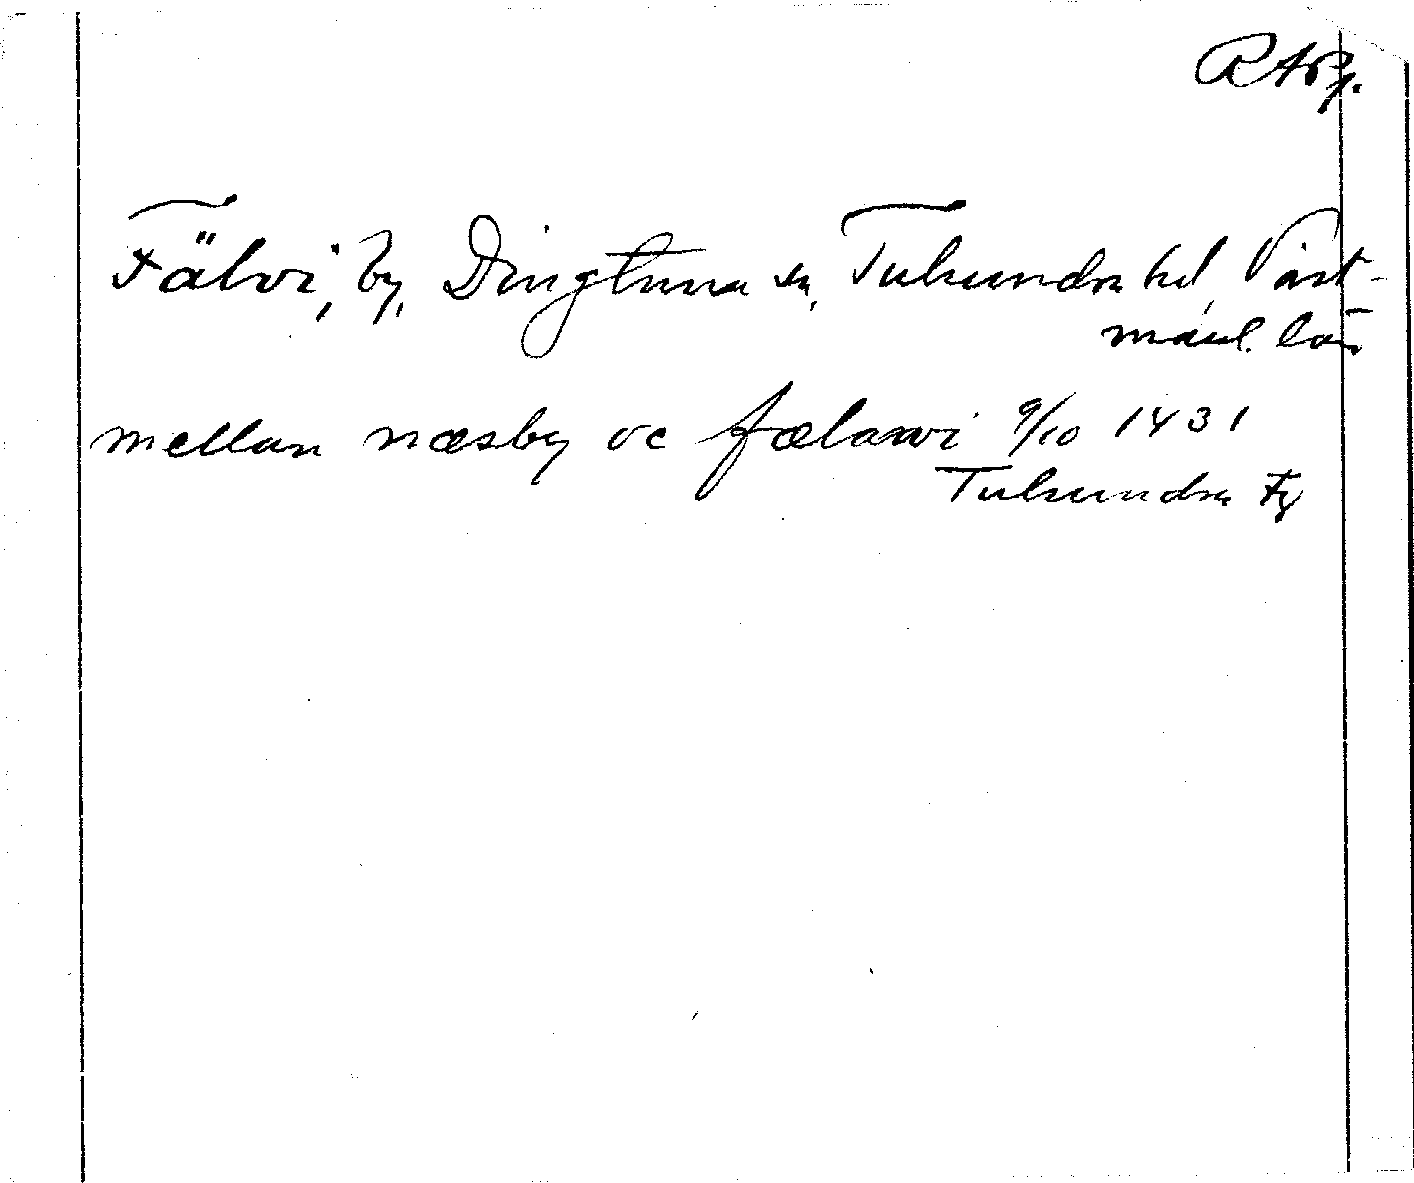 RAp.
Fälvi, by, Dingtuna sn, Tuhundra hd, Väst-
manl. län
mellan næsby oc fælawi 9/10 1431
Tuhundra